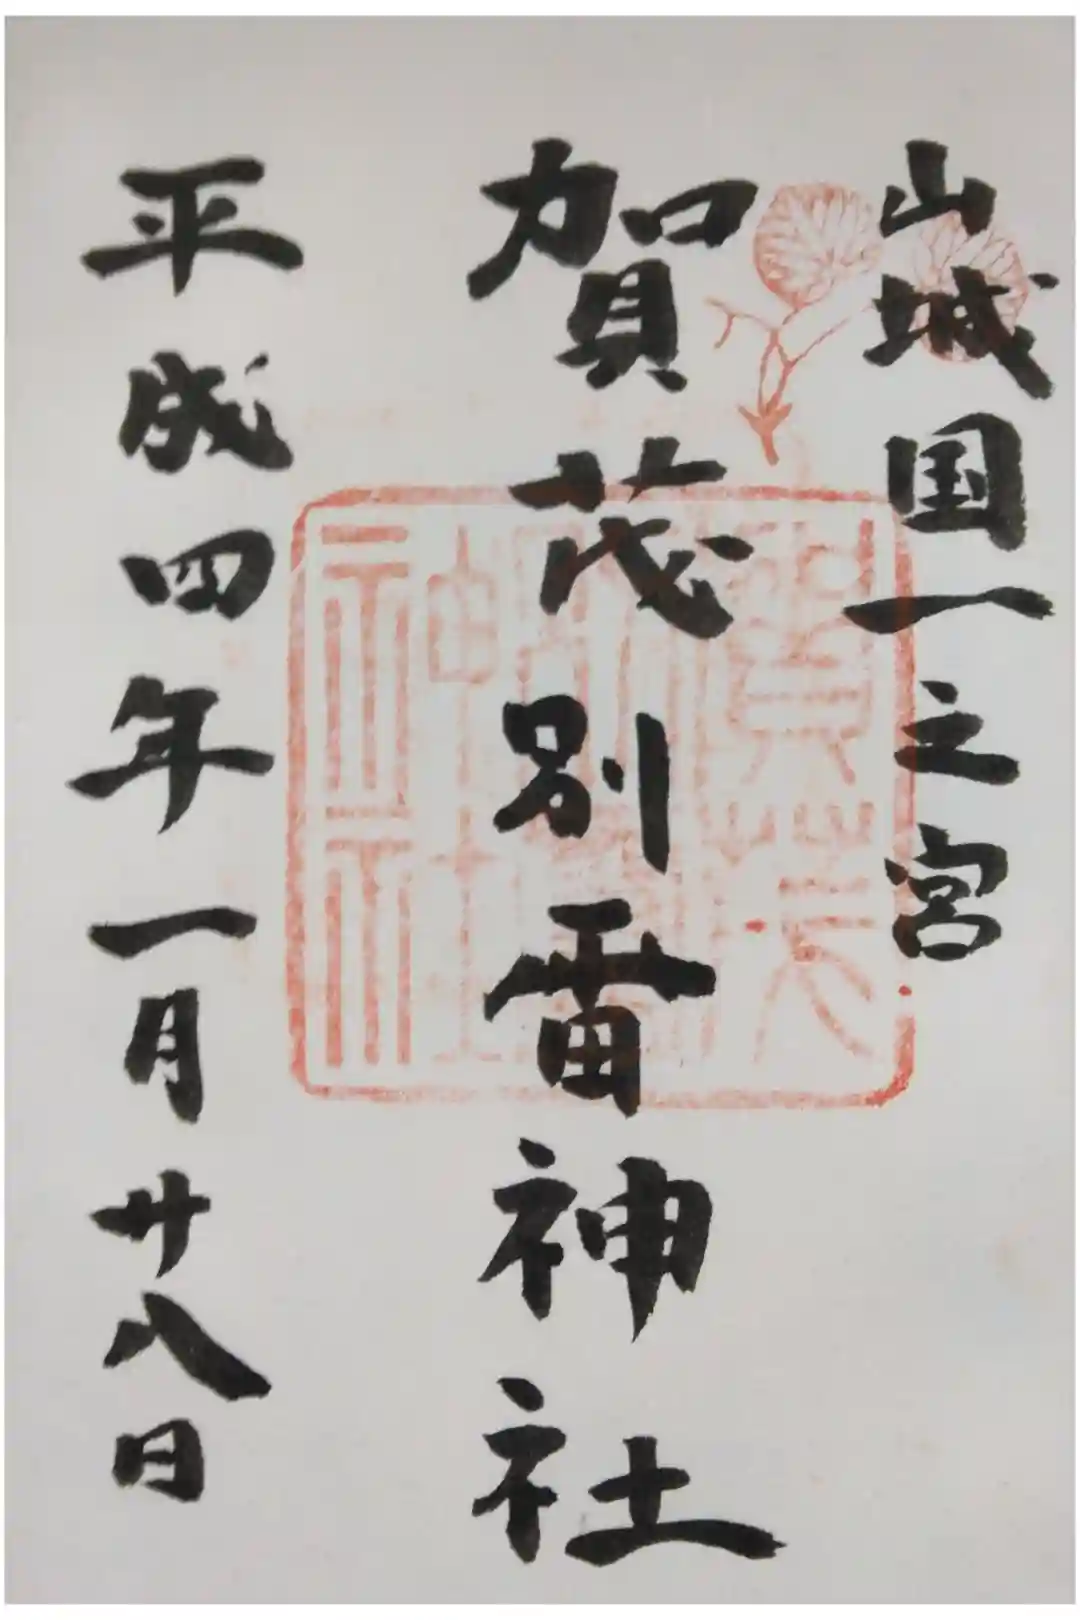 山城国一之宮
賀茂別雷神社
平成四年一月廿八日
賀茂別雷神社